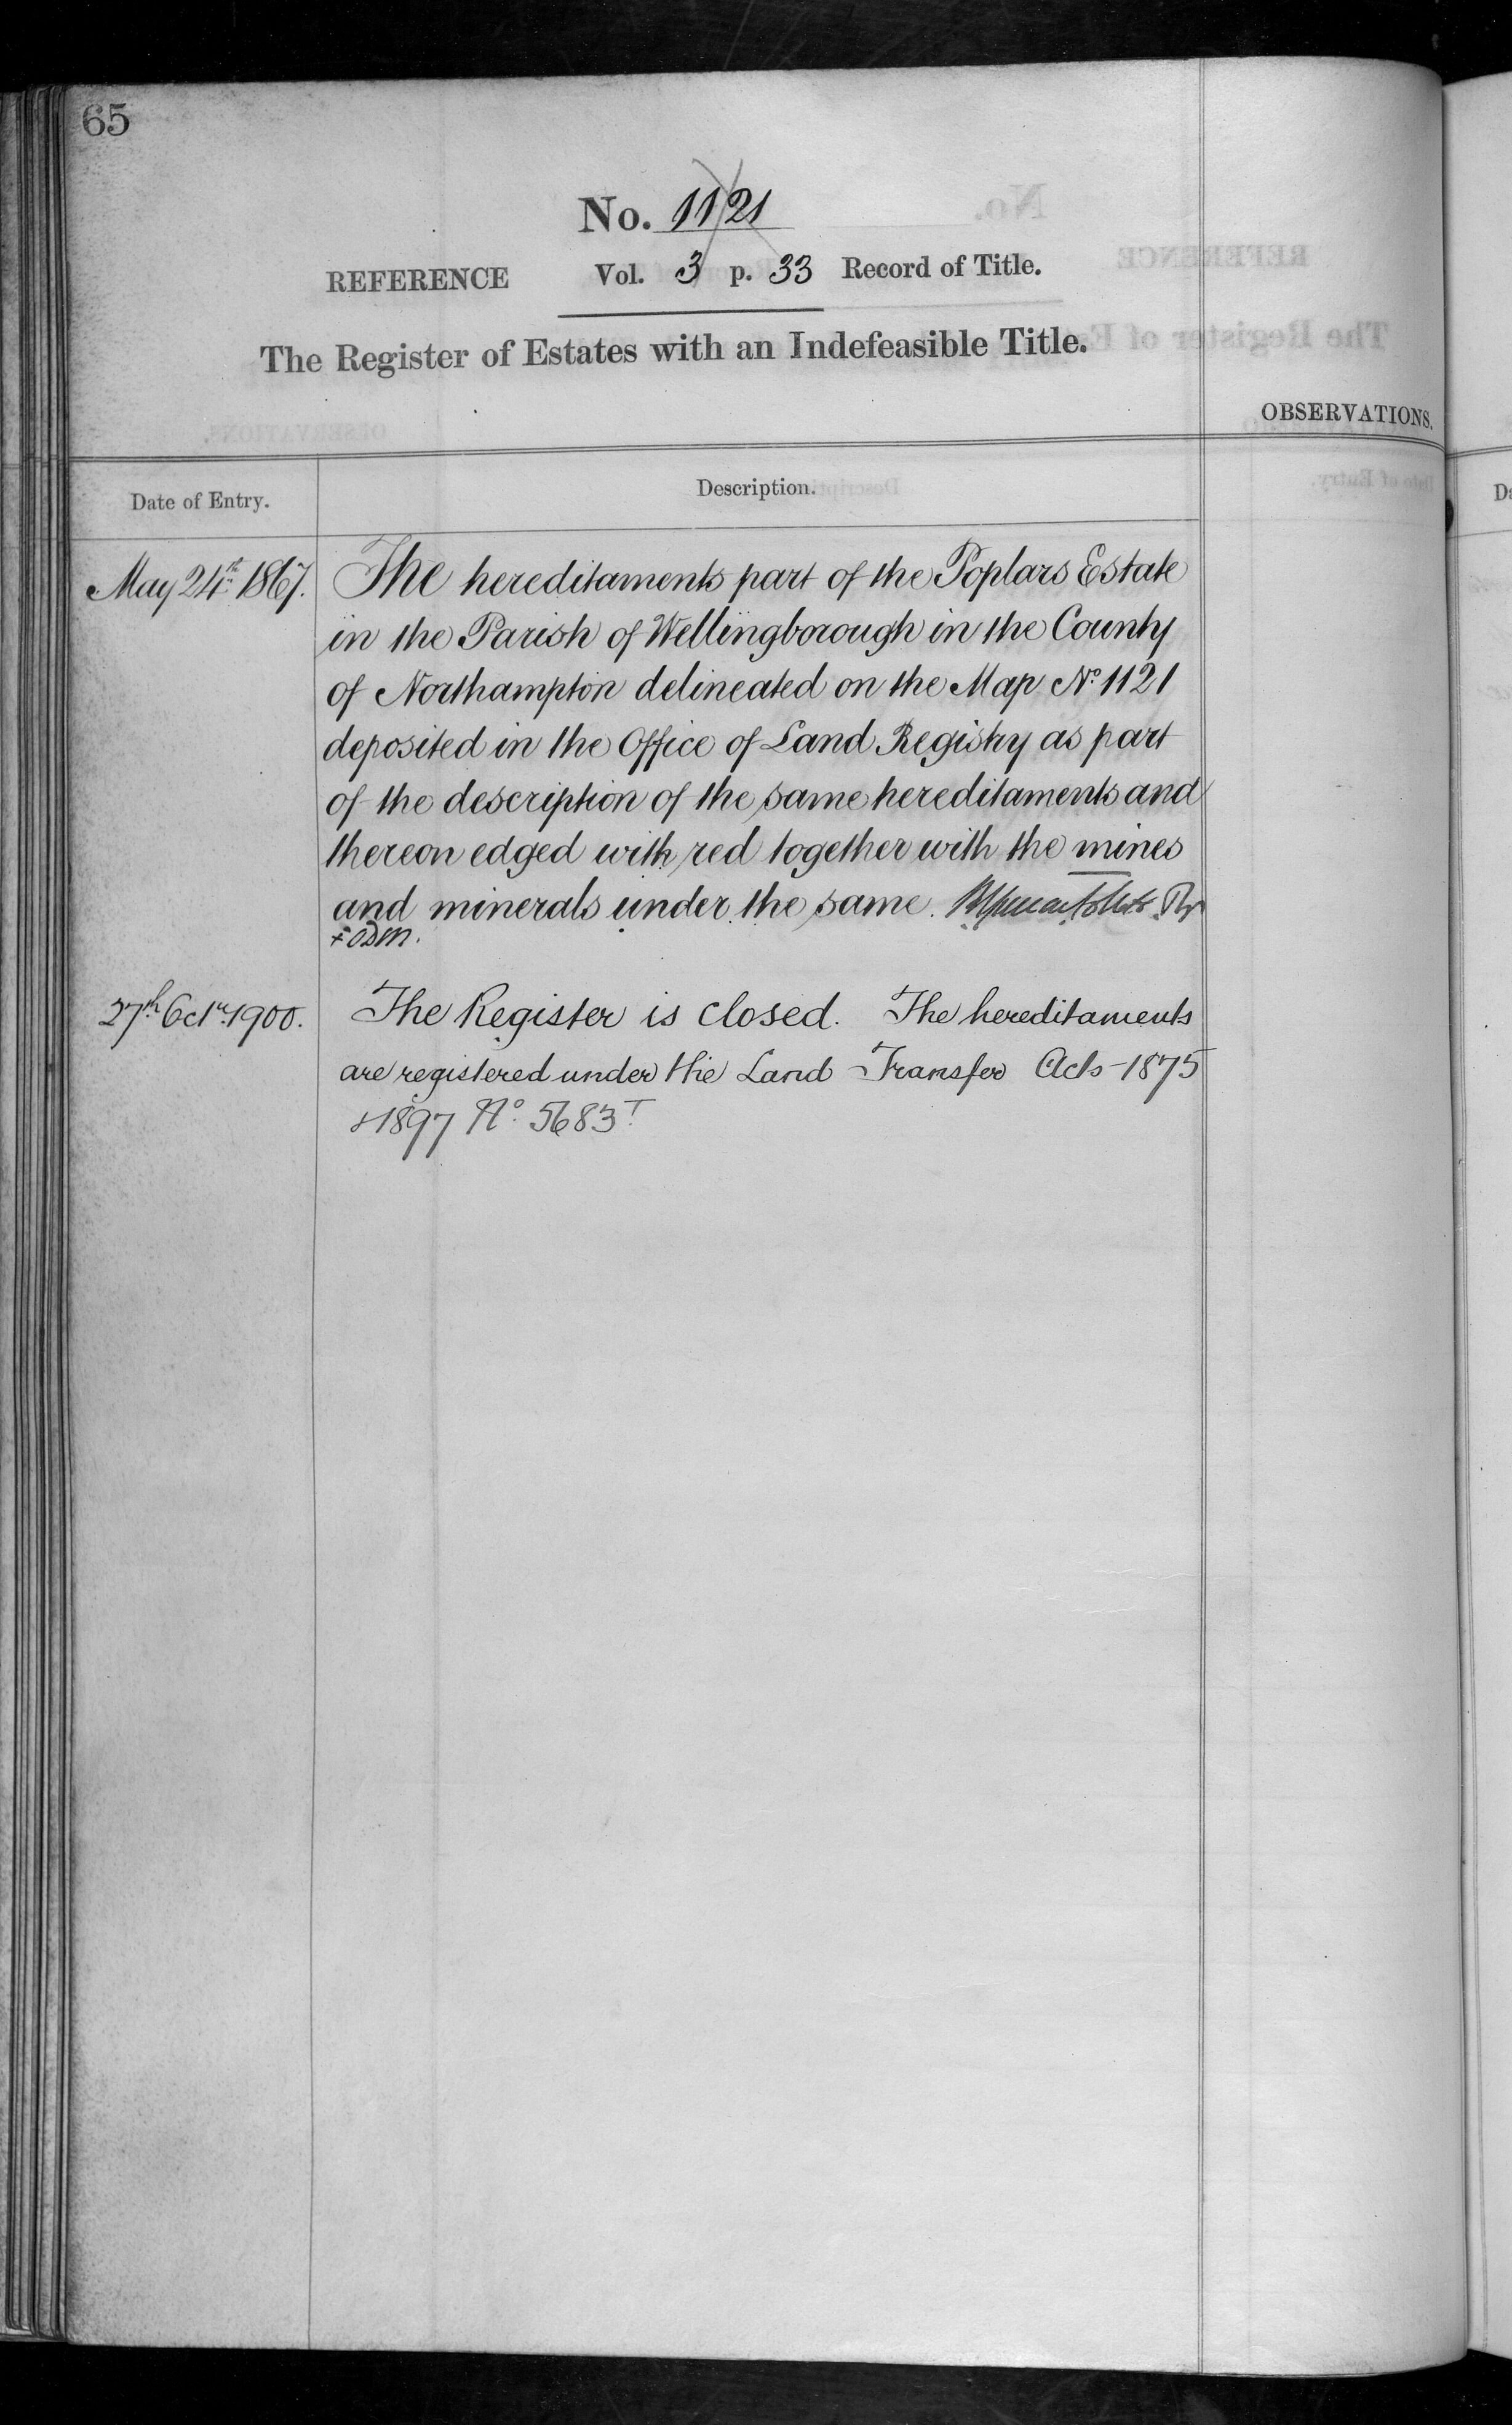 65
No. 1121
REFERENCE Vol. 3 p. 33 Record of Title.
The Register of Estates with an Indefeasible Title.
OBSERVATIONS.
Date of Entry. Description.
May 24th 1867. The hereditaments part of the Poplars Estate
in the Parish of Wellingborough in the County
of Northampton delineated on the Map No. 1121
deposited in the Office of Land Registry as part
of the description of the same hereditaments and
thereon edged with red together with the mines
and minerals under the same.
27th Octr. 1900. The Register is closed. The hereditaments
are registered under the Land Transfer Acts 1875
& 1897 No. 5683T